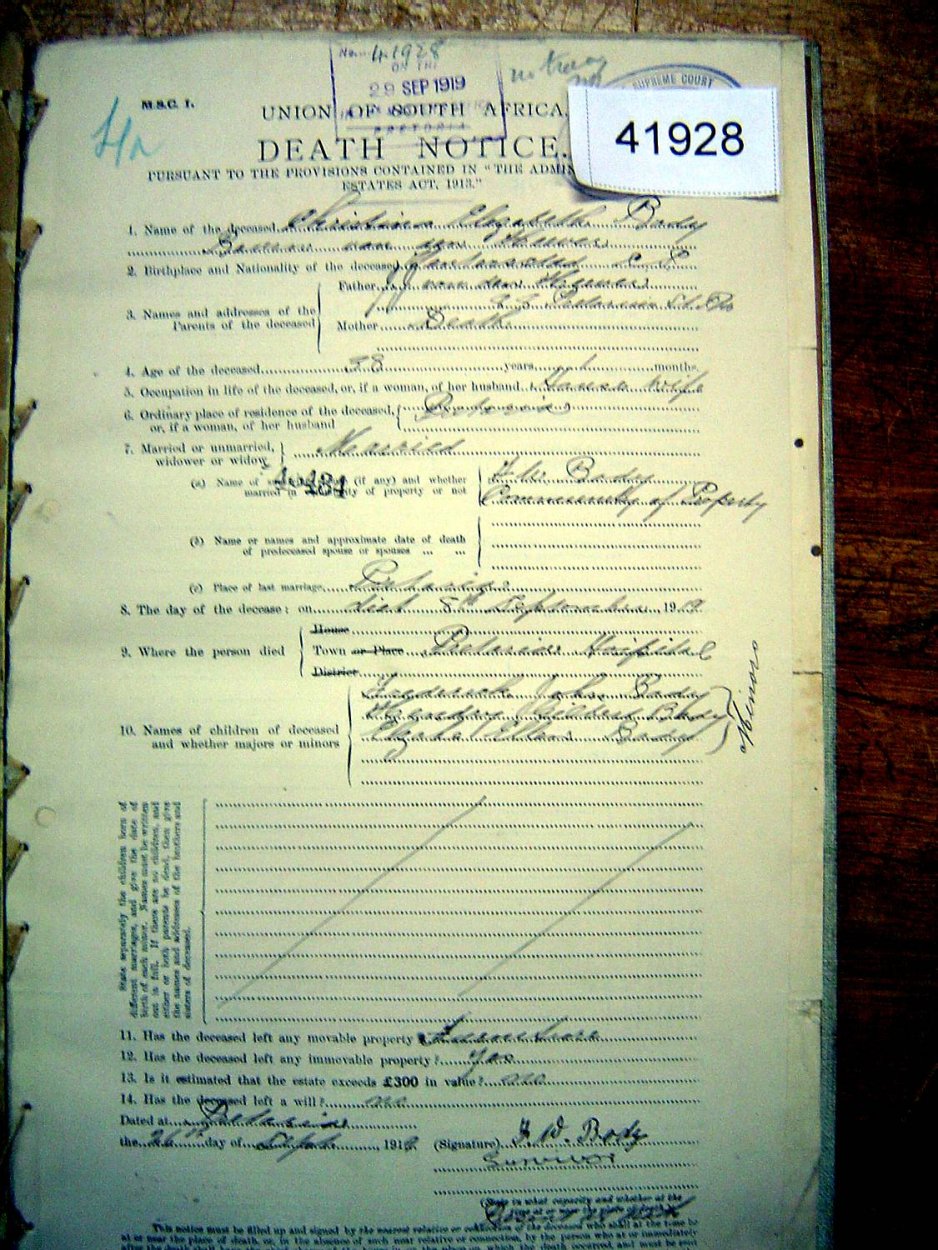 No. 41928
29 SEP 1919
SUPREME COURT
M.S.C. 1.
UNION OF SOUTH AFRICA.
41928
DEATH NOTICE.
PURSUANT TO THE PROVISIONS CONTAINED IN "THE ADMIN
ESTATES ACT, 1913."
1. Name of the deceased Christina Elizabeth Body
Born van den Heever
2. Birthplace and Nationality of the deceased
3. Names and addresses of the Parents of the deceased
Father van den Heever
Mother Death
4. Age of the deceased 38 years 1 months.
5. Occupation in life of the deceased, or, if a woman, of her husband House wife
6. Ordinary place of residence of the deceased, or, if a woman, of her husband Pretoria
7. Married or unmarried, widower or widow Married
(a) Name of (if any) and whether married in of property or not F. W. Body
Community of Property
(b) Name or names and approximate date of death of predeceased spouse or spouses
(c) Place of last marriage Pretoria
8. The day of the decease: on died 8th September 1919
9. Where the person died
House
Town or Place Pretoria Hospital
District
10. Names of children of deceased and whether majors or minors
Frederick John Body
Body
Body
Minors
State separately the children born of
different marriages, and give the date of
birth of each minor. Names must be written
out in full. If there are no children, and
either or both parents be dead, then give
the names and addresses of the brothers and
sisters of deceased.
11. Has the deceased left any movable property? Furniture
12. Has the deceased left any immovable property? yes
13. Is it estimated that the estate exceeds £300 in value? no
14. Has the deceased left a will? no
Dated at Pretoria
the 26th day of Sept. 1919 (Signature) F. W. Body
Survivor
This notice must be filled up and signed by the nearest relative or connection of the deceased who shall at the time be
at or near the place of death, or, in the absence of such near relative or connection, by the person who at or immediately